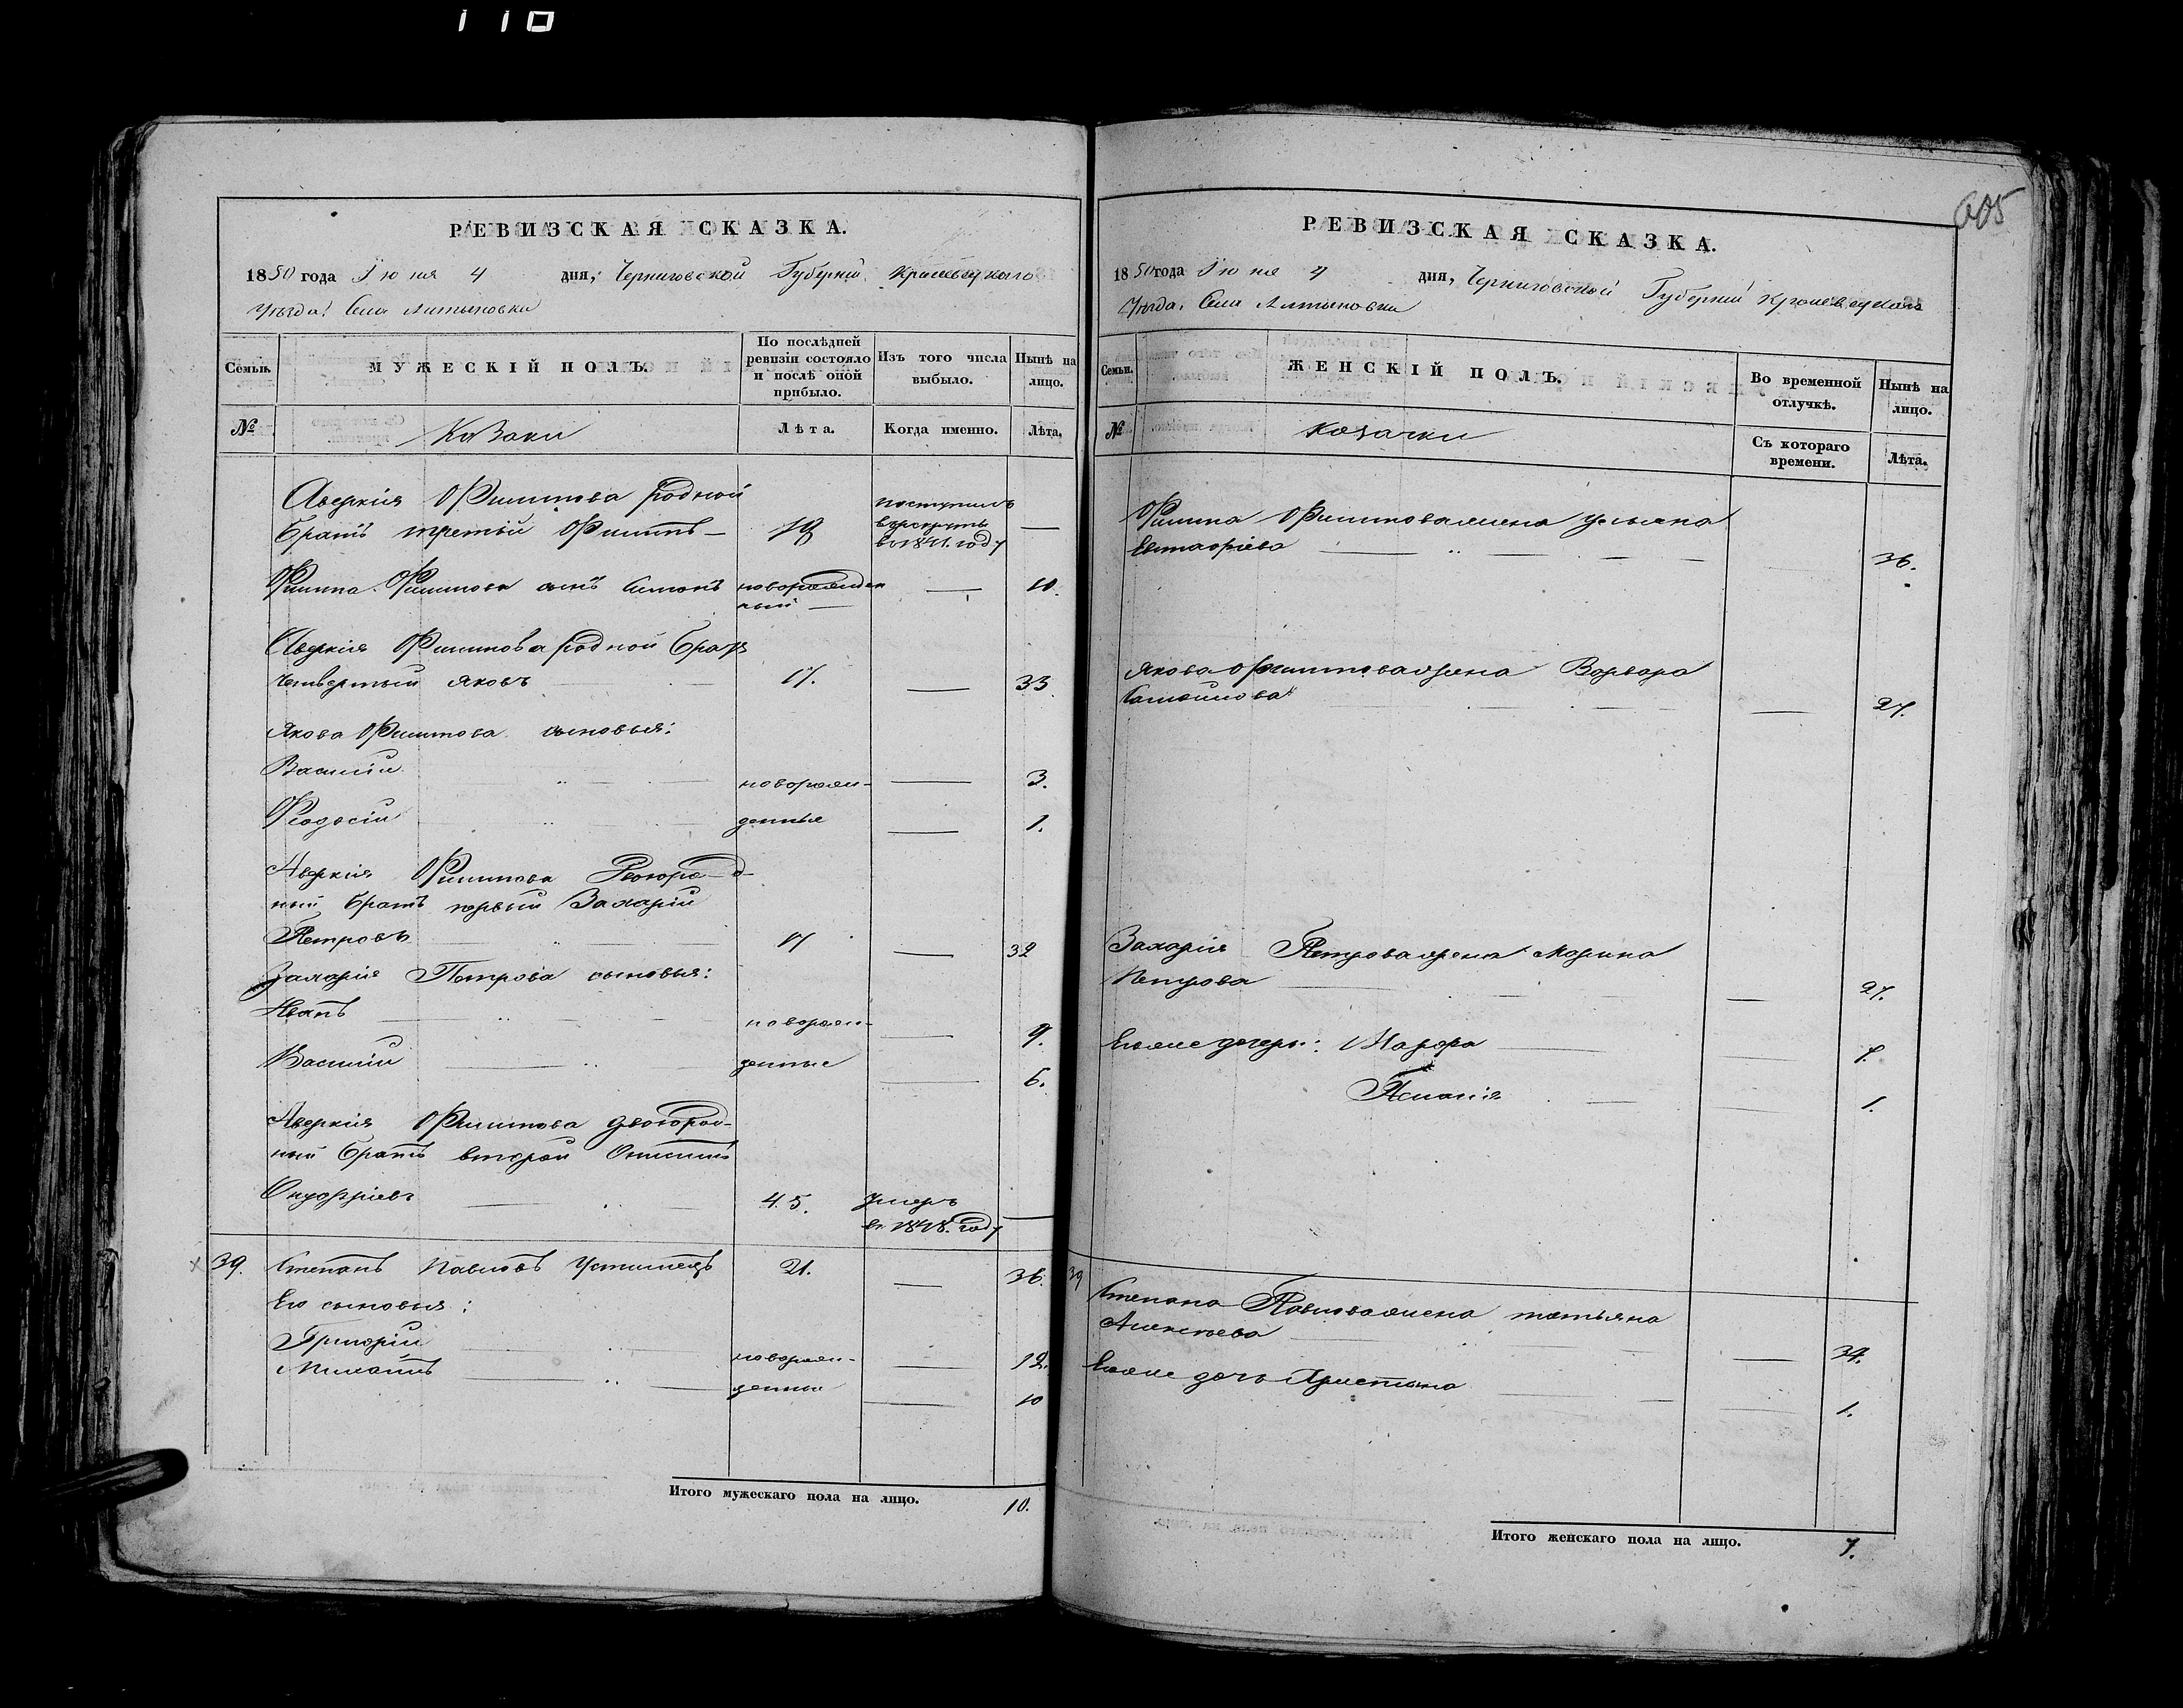 110
РЕВИЗСКАЯ СКАЗКА.
1850 года Іюня 4 дня, Черниговской Губерніи Кролевецкаго
Уѣзда. Села Алтыновки
Семьи.
МУЖЕСКІЙ ПОЛЪ.
По послѣдней ревизіи состояло и послѣ оной прибыло.
Изъ того числа выбыло.
Нынѣ на лицо.
№
Козаки
Лѣта.
Когда именно.
Лѣта.
Аверкія Филипова родной
братъ третій Филипъ — 19 поступилъ в рекруты в 1841. году —
Филипа Филипова сынъ Симонъ новорожденный — 10.
Аверкія Филипова родной братъ
четвертый Яковъ 17. — 33
Якова Филипова сыновья:
Василій новорож- — 3.
Феодосій денные — 1.
Аверкія Филипова двоюрод-
ный братъ первый Захарій
Петровъ 17 — 32
Захарія Петрова сыновья:
Иванъ новорож- — 9.
Василій денные — 6.
Аверкія Филипова двоюрод-
ный братъ второй Онисимъ
Онуфріевъ 45. умеръ в 1848. году —
39. Степанъ Павловъ Устимецъ 21. — 36.
Его сыновья:
Григорій новорож- — 12.
Игнатъ денные — 10
Итого мужескаго пола на лицо. 10.
605
РЕВИЗСКАЯ СКАЗКА.
1850 года Іюня 4 дня, Черниговской Губерніи Кролевецкаго
Уѣзда. Села Алтыновки
Семьи.
ЖЕНСКІЙ ПОЛЪ.
Во временной отлучкѣ.
Нынѣ на лицо.
№
Козачки
Съ котораго времени.
Лѣта.
Филипа Филипова жена Ульяна
Евстафіева — 36.
Якова Филипова жена Варвара
Самойлова — 27.
Захарія Петрова жена Марина
Петрова — 27.
Его же дочери: Марфа — 7.
— 1.
39 Степана Павлова жена Татьяна
Алексѣева — 34.
Его же дочь Христина — 1.
Итого женскаго пола на лицо. 7.